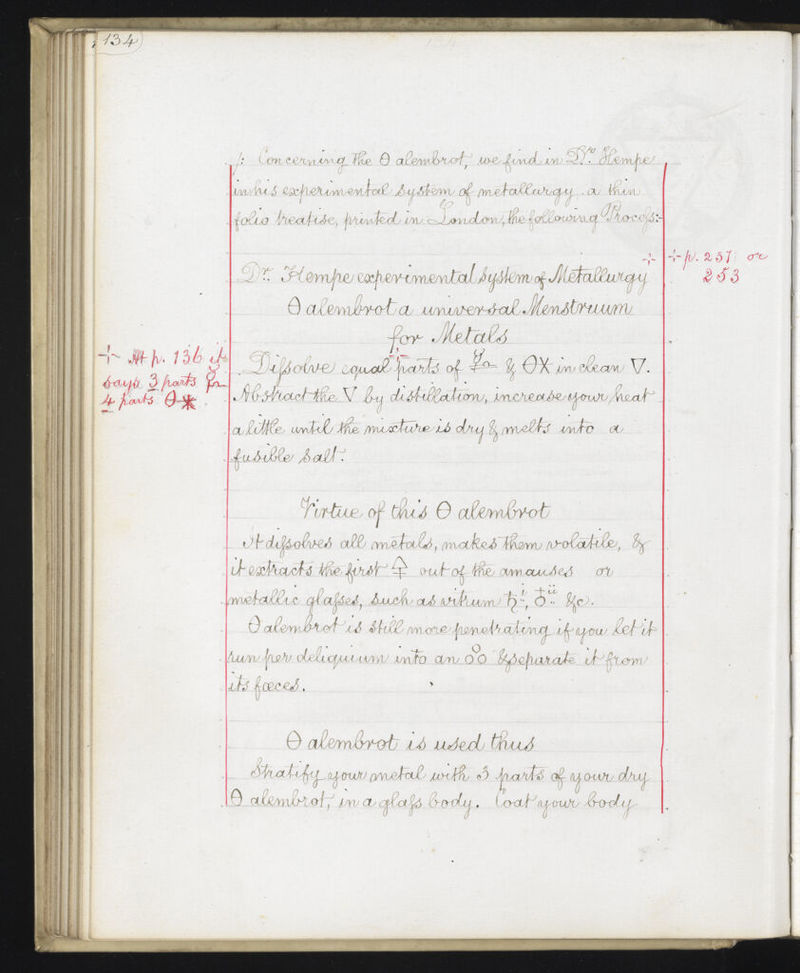 134
/: Concerning the Θ alembrot, we find in Dr. Hempe
in his experimental system of metallurgy a thin
folio treatise, printed in London, the following Process:-
Dr. Hempe experimental system of Metallurgy
⊹ ⊹ p. 257 or
253
Θ alembrot a universal Menstruum
for Metals
⊹ At p. 136 it
says 3 parts
4 parts Θ✶
Dissolve equal parts of & Θ✶ in clean ▽.
Abstract the ▽ by distillation, increase your heat
a little until the mixture is dry & melts into a
fusible salt.
Virtue of this Θ alembrot
It dissolves all metals, makes them volatile, &
it extracts the first 🜍 out of the amauses or
metallic glasses, such as vitrum ♄i, ♁ii &c.
Θ alembrot is still more penetrating if you let it
run per deliquium into an o°o & separate it from
its fœces.
Θ alembrot is used thus
Stratify your metal with 3 parts of your dry
Θ alembrot, in a glass body. Coat your body